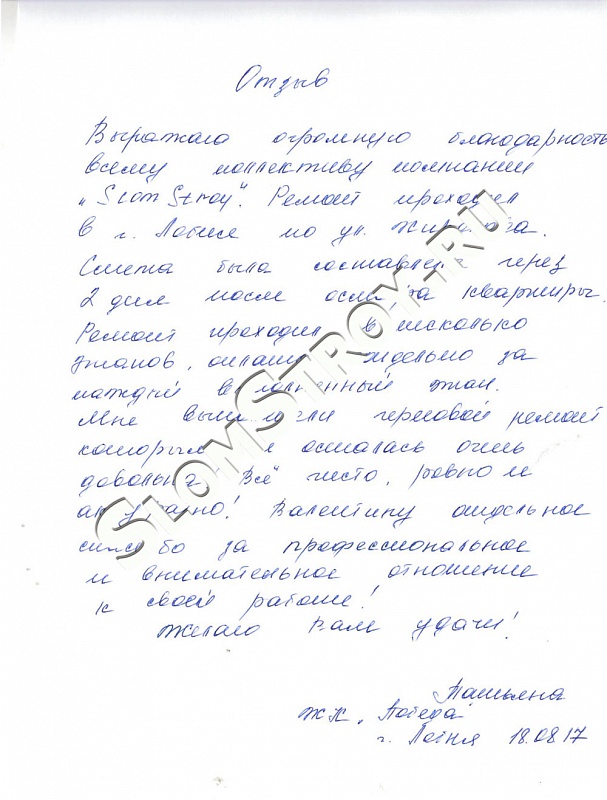 Отзыв
Выражаю огромную благодарность
всему коллективу компании
"Slom Stroy". Ремонт проходил
в г. Лобня по ул. Жирохова.
Смета была составлена через
2 дня после осмотра квартиры.
Ремонт проходил в несколько
этапов, оплата отдельно за
каждый выполненный этап.
Мне выполняли черновой ремонт
которым я осталась очень
довольна. Всё чисто, ровно и
аккуратно! Валентину отдельное
спасибо за профессиональное
и внимательное отношение
к своей работе!
Желаю Вам удачи!
Татьяна
ЖК "Победа"
г. Лобня 18.08.17
SLOMSTROY.RU